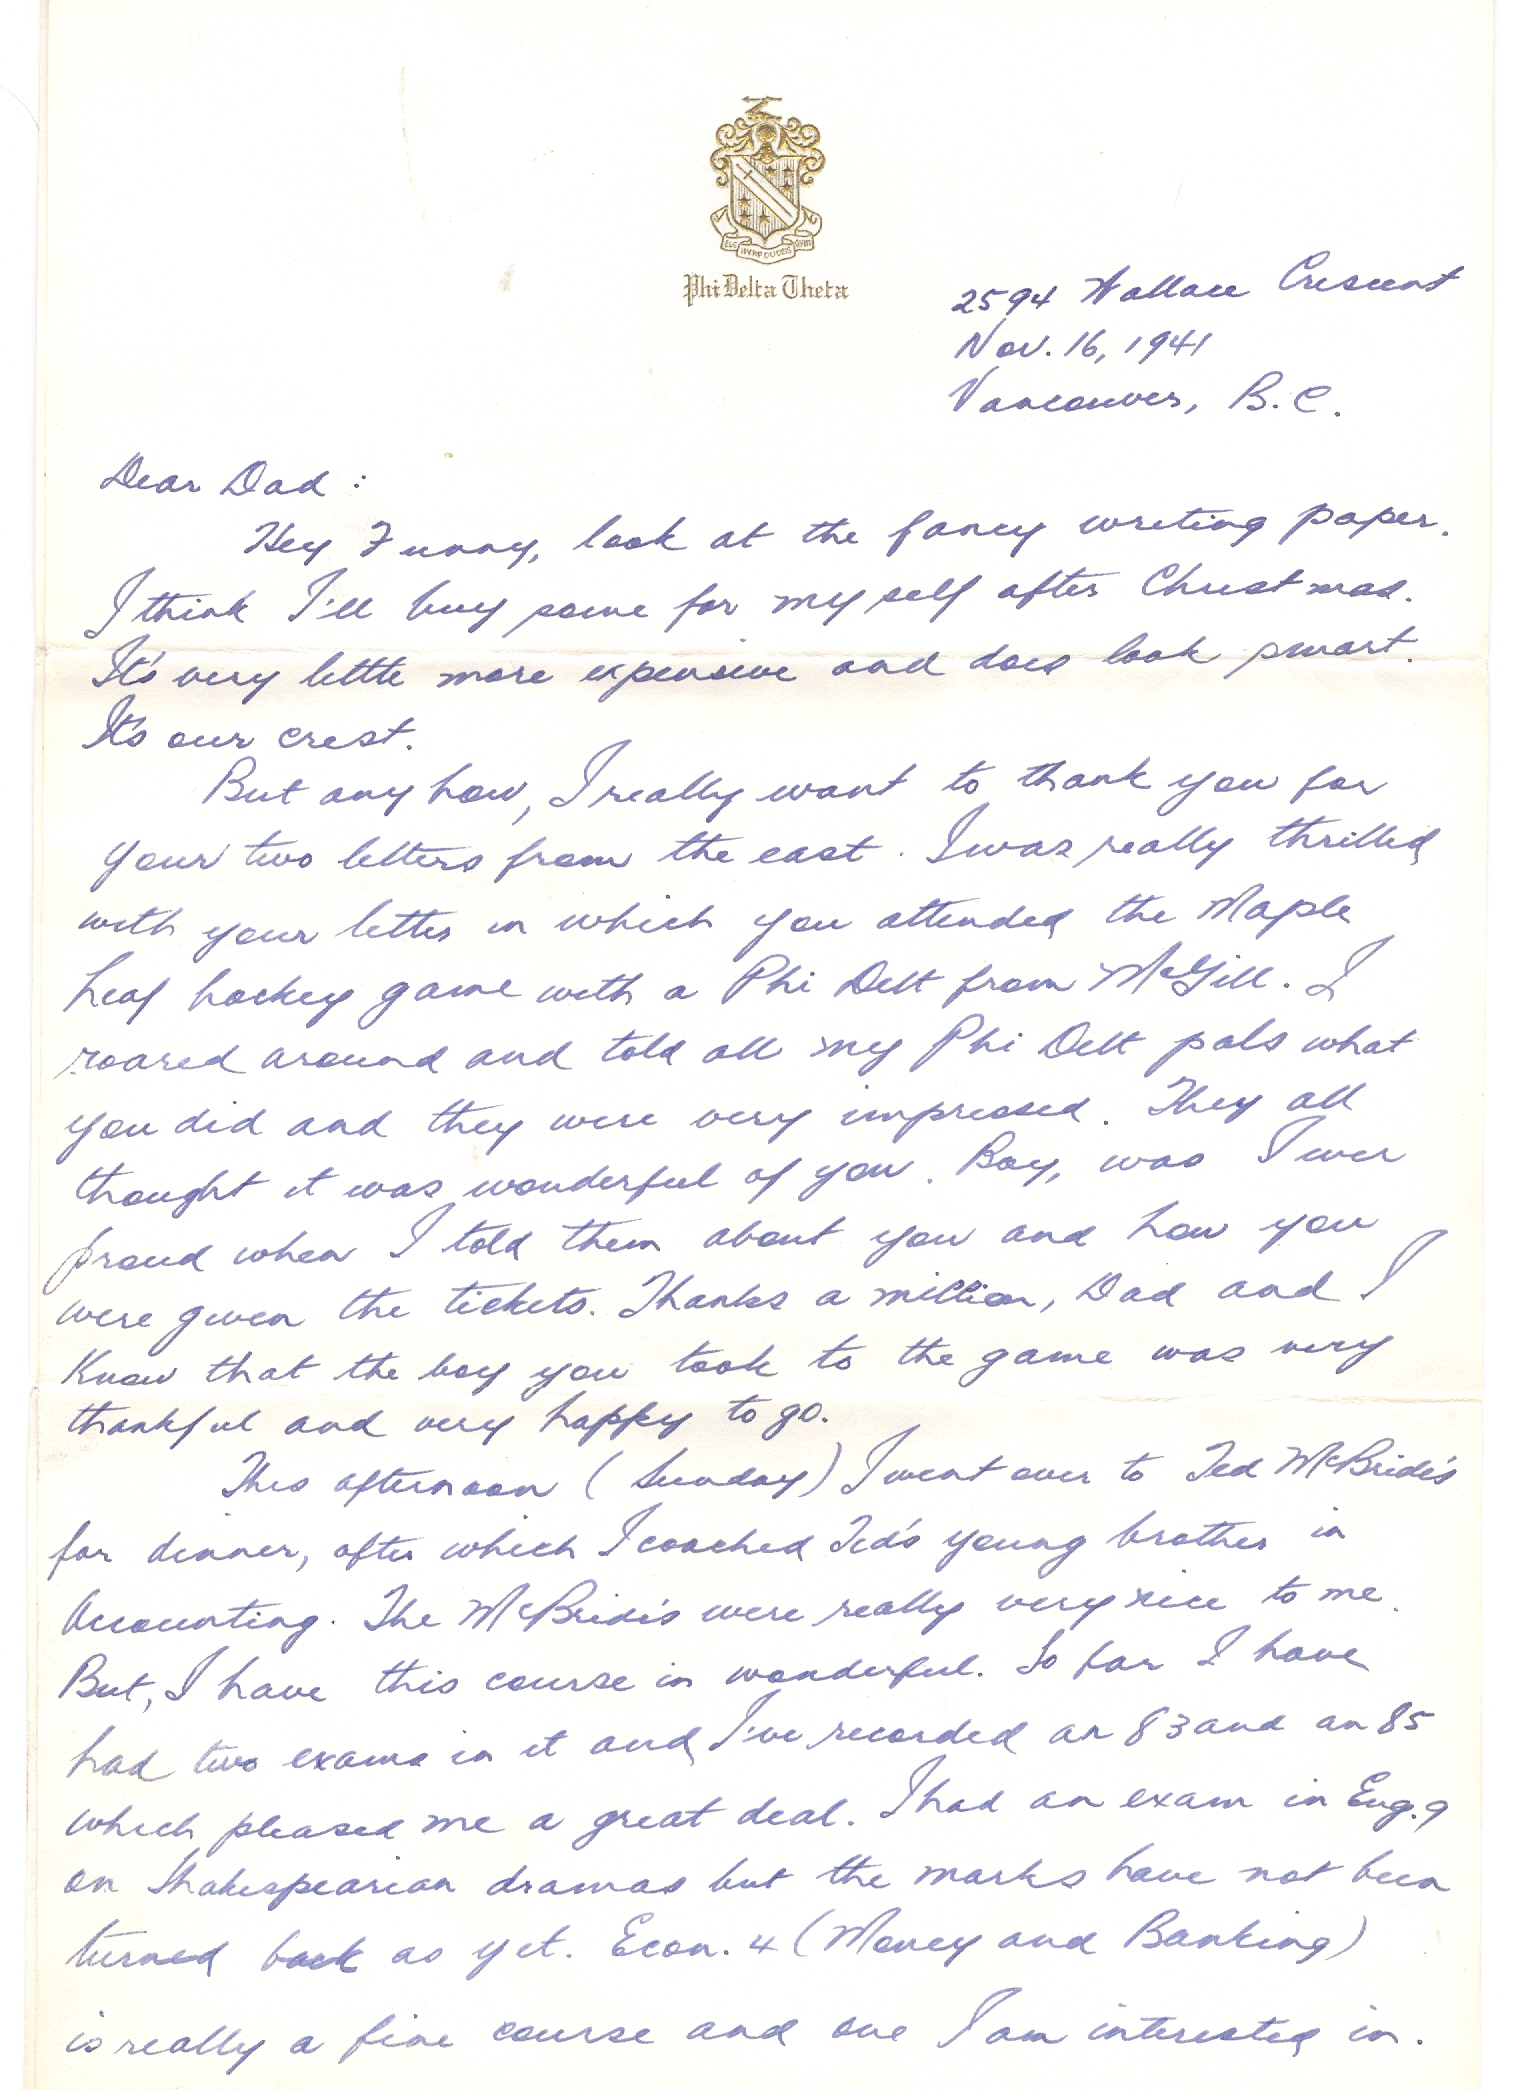 Phi Delta Theta
2594 Wallace Crescent
Nov. 16, 1941
Vancouver, B.C.
Dear Dad :
Hey Funny, look at the fancy writing paper.
I think I'll buy some for myself after Christmas.
It's very little more expensive and does look smart.
It's our crest.
But anyhow, I really want to thank you for
your two letters from the east. I was really thrilled
with your letter in which you attended the Maple
Leaf hockey game with a Phi Delt from McGill. I
roared around and told all my Phi Delt pals what
you did and they were very impressed. They all
thought it was wonderful of you. Boy, was I ever
proud when I told them about you and how you
were given the tickets. Thanks a million, Dad and I
know that the boy you took to the game was very
thankful and very happy to go.
This afternoon (Sunday) I went over to Ted McBride's
for dinner, after which I coached Ted's young brother in
Accounting. The McBride's were really very nice to me.
But, I have this course in wonderful. So far I have
had two exams in it and I've recorded an 83 and an 85
which pleased me a great deal. I had an exam in Eng. 9
on Shakespearian dramas but the marks have not been
turned back as yet. Econ. 4 (Money and Banking)
is really a fine course and one I am interested in.